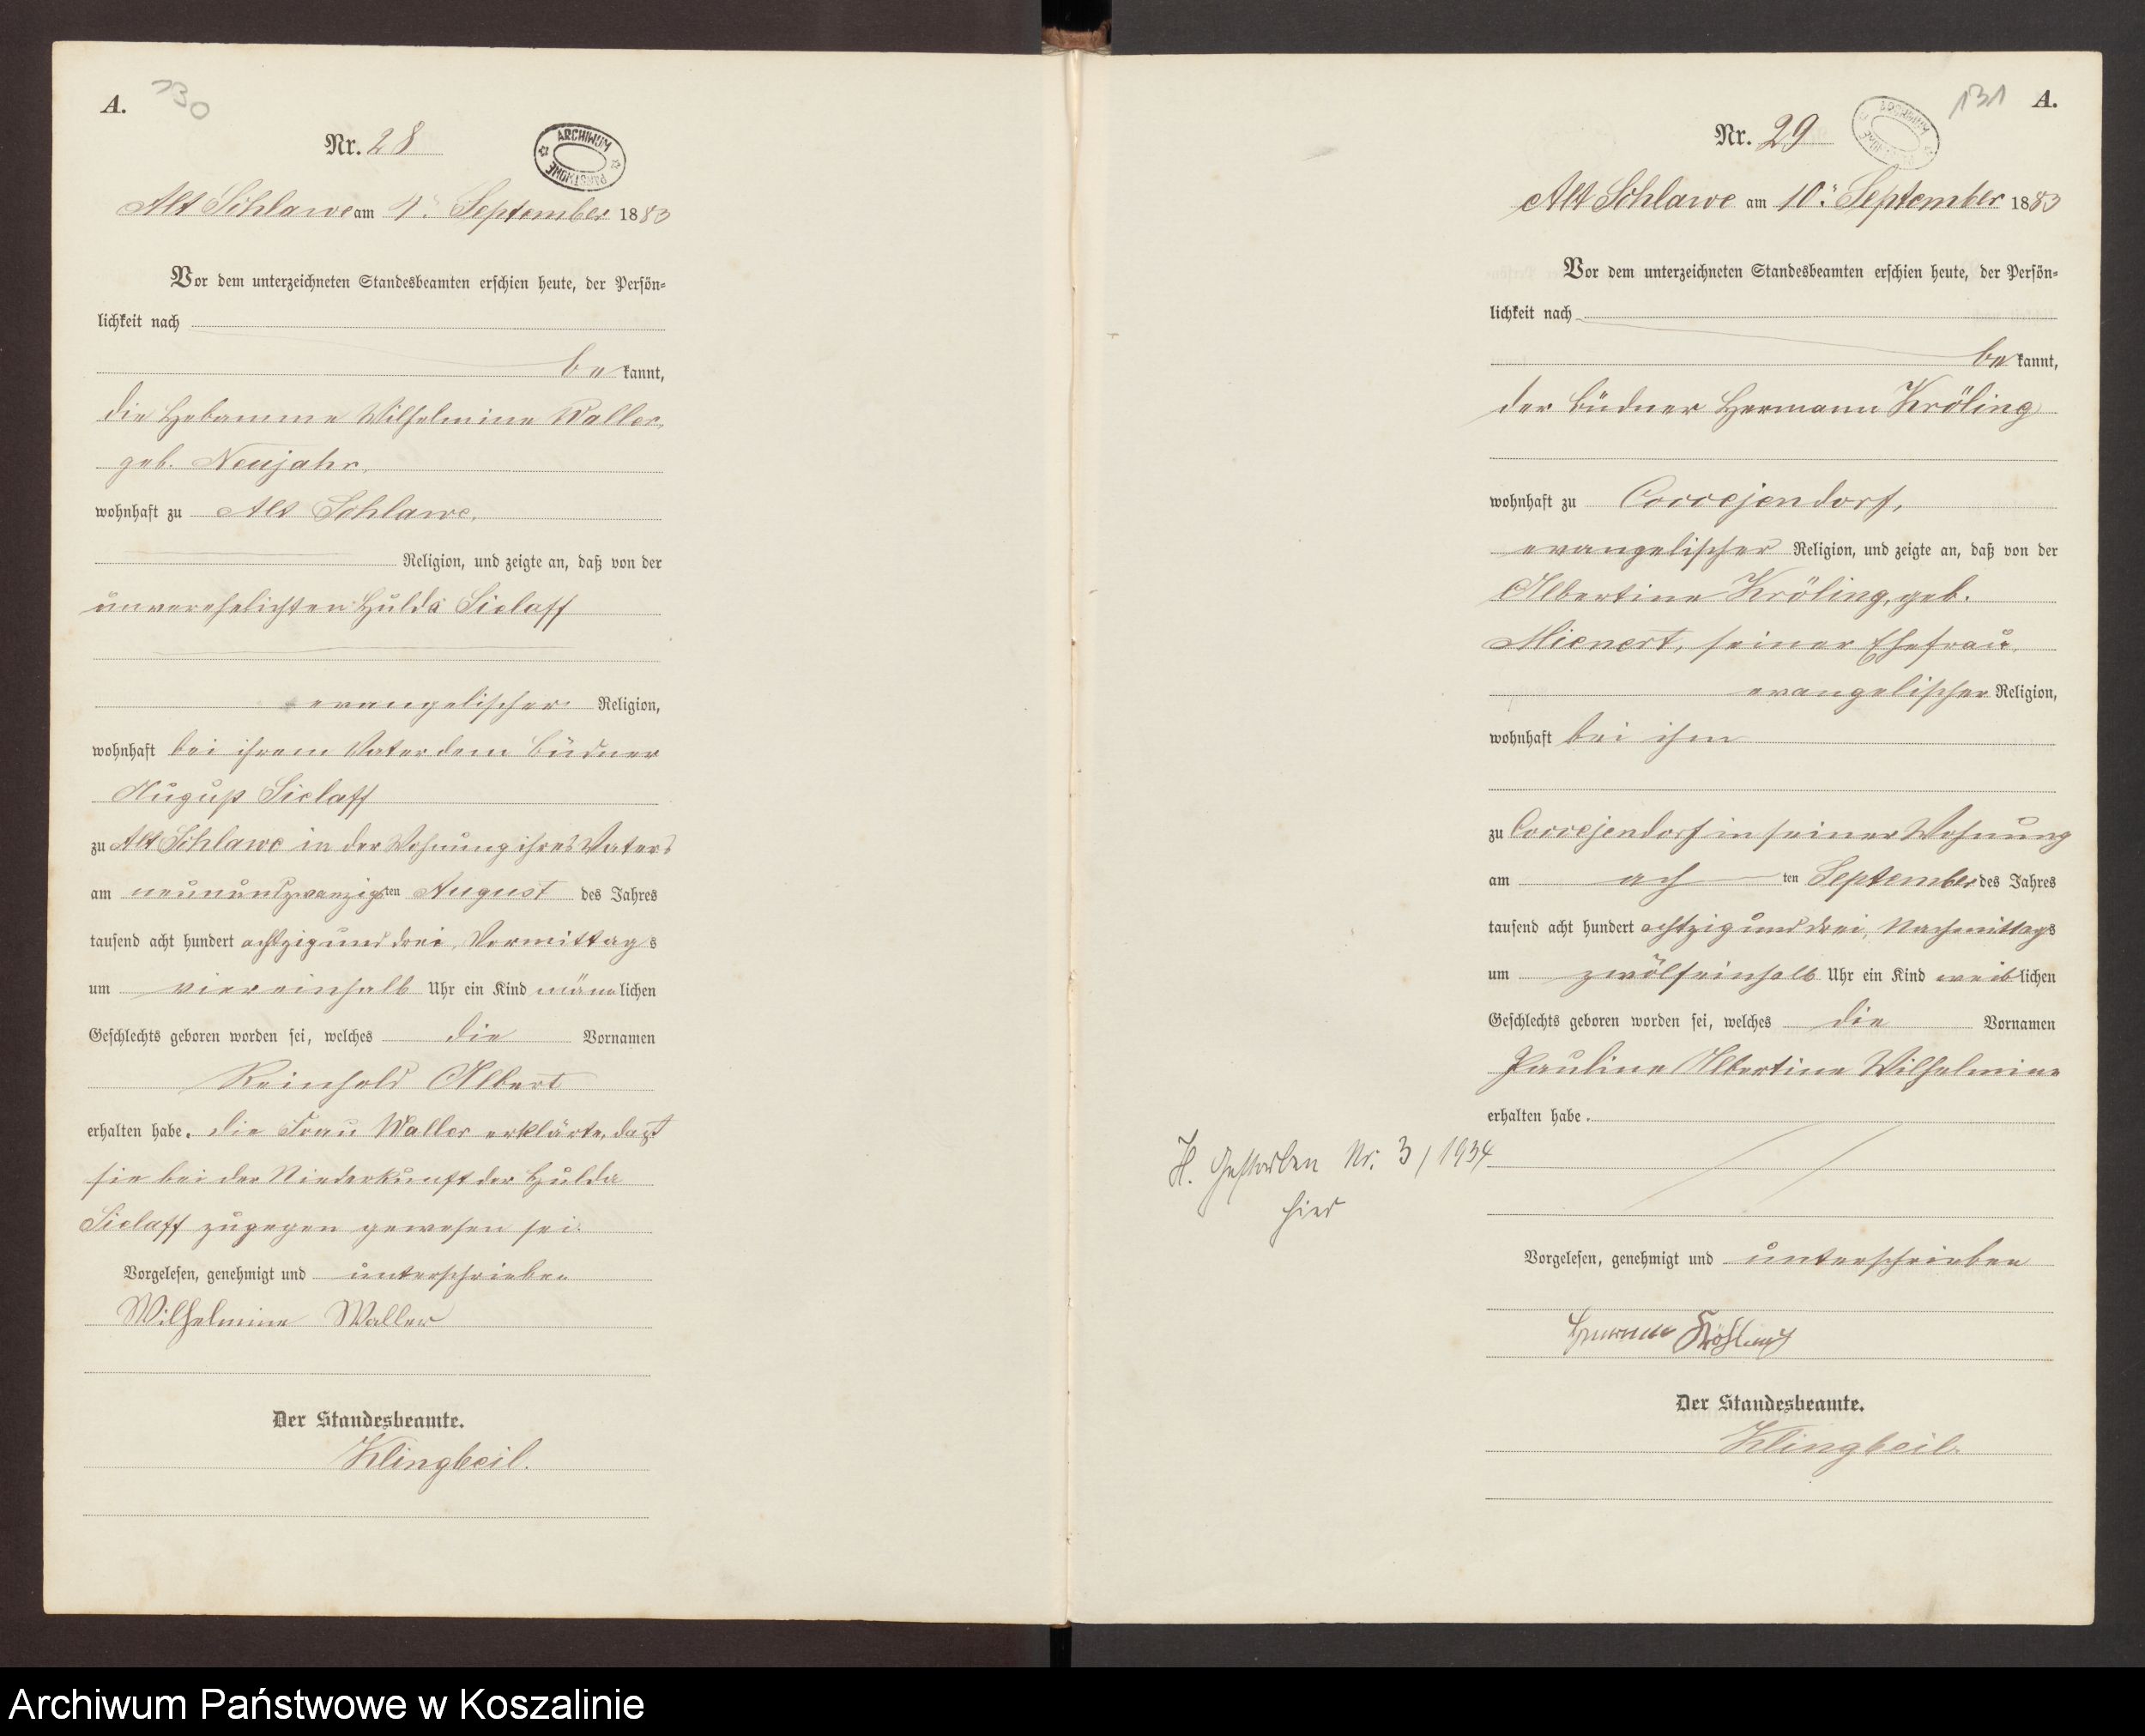 A. 130
Nr. 28
ARCHIWUM PAŃSTWOWE
Alt Schlawe am 1. September 1883
Vor dem unterzeichneten Standesbeamten erschien heute, der Persön-
lichkeit nach
be kannt,
die Hebamme Wilhelmine Waller,
geb. Neujahr,
wohnhaft zu Alt Schlawe,
Religion, und zeigte an, daß von der
unverehelichten Hulda Sielaff
evangelischer Religion,
wohnhaft bei ihrem Vater dem Büdner
August Sielaff
zu Alt Schlawe in der Wohnung ihres Vaters
am neunundzwanzigsten August des Jahres
tausend acht hundert achtzig und drei, Vormittags
um viereinhalb Uhr ein Kind männlichen
Geschlechts geboren worden sei, welches die Vornamen
Reinhold Albert
erhalten habe. die Frau Waller erklärte, daß
sie bei der Niederkunft der Hulda
Sielaff zugegen gewesen sei.
Vorgelesen, genehmigt und unterschrieben
Wilhelmine Waller
Der Standesbeamte.
Klingbeil.
131 A.
Nr. 29
ARCHIWUM
Alt Schlawe am 10. September 1883
Vor dem unterzeichneten Standesbeamten erschien heute, der Persön-
lichkeit nach
be kannt,
der Büdner Hermann Kröling
wohnhaft zu Coccejendorf,
evangelischer Religion, und zeigte an, daß von der
Albertine Kröling, geb.
Mienert, seiner Ehefrau,
evangelischer Religion,
wohnhaft bei ihm
zu Coccejendorf in seiner Wohnung
am ach ten September des Jahres
tausend acht hundert achtzig und drei, Nachmittags
um zwölfeinhalb Uhr ein Kind weiblichen
Geschlechts geboren worden sei, welches die Vornamen
Pauline Albertine Wilhelmine
erhalten habe.
H. Gestorben Nr. 3/1934
hier
Vorgelesen, genehmigt und unterschrieben
Hermann Kröhling
Der Standesbeamte.
Klingbeil.
Archiwum Państwowe w Koszalinie